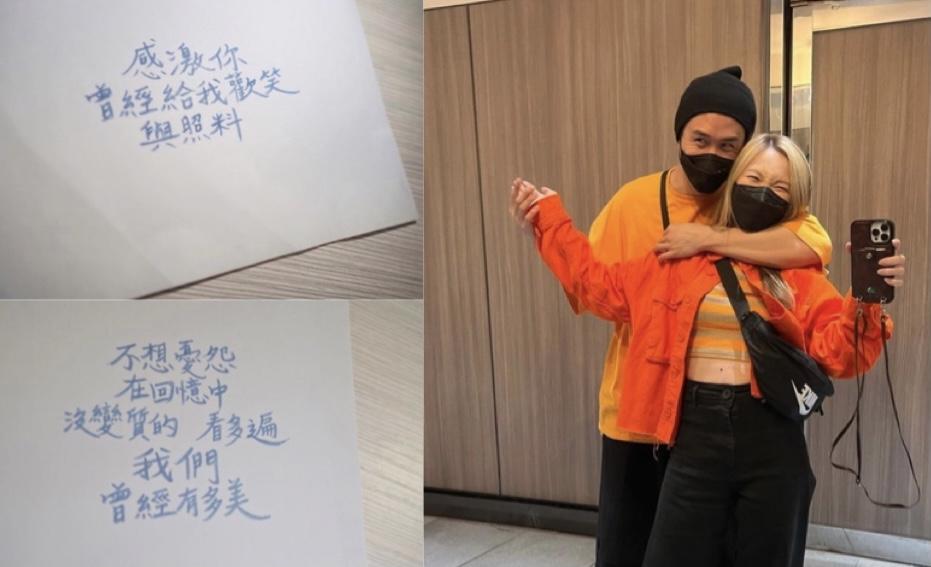 感激你
曾經給我歡笑
與照料
不想憂怨
在回憶中
沒變質的 看多遍
我們
曾經有多美